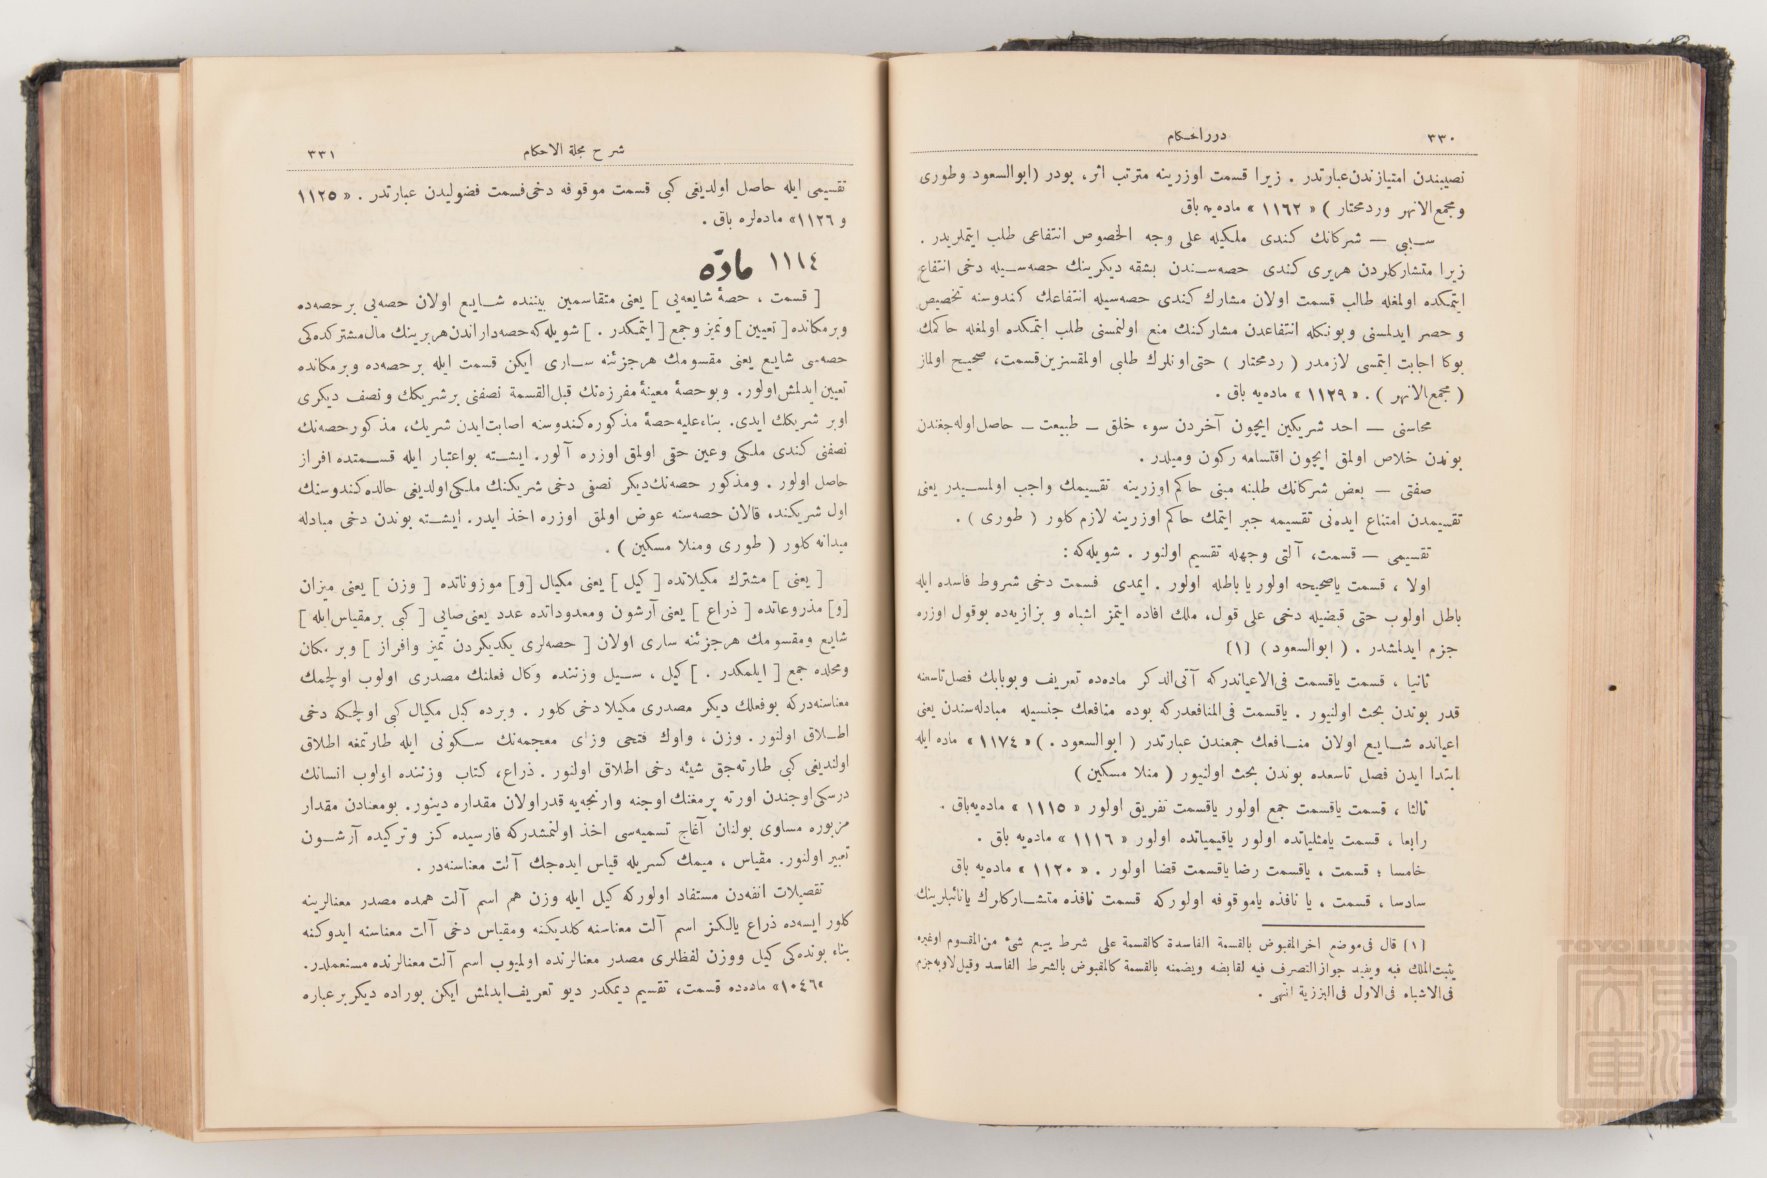 ٣٣٠
دررالحكام
نصيبندن امتيازندن عبارتدر . زيرا قسمت اوزرينه مترتب اثر، بودر (ابوالسعود وطورى
ومجمع الانهر وردمحتار ) « ١١٦٢ » ماده‌يه باق
سببى — شركانك كندى ملكيله على وجه الخصوص انتفاعى طلب ايتملريدر .
زيرا متشاركلردن هربرى كندى حصه‌سندن بشقه ديكرينك حصه‌سيله دخى انتفاع
ايتمكده اولمغله طالب قسمت اولان مشارك كندى حصه‌سيله انتفاعك كندوسنه تخصيص
و حصر ايدلمسنى وبونكله انتفاعدن مشاركنك منع اولنمسنى طلب ايتمكده اولمغله حاكمك
بوكا اجابت ايتمسى لازمدر ( ردمحتار ) حتى اونلرك طلبى اولمقسزين قسمت، صحيح اولماز
( مجمع الانهر ) . « ١١٢٩ » ماده‌يه باق .
محاسنى — احد شريكين ايچون آخردن سوء خلق – طبيعت – حاصل اوله‌جغندن
بوندن خلاص اولمق ايچون اقتسامه ركون وميلدر .
صفتى — بعض شركانك طلبنه مبنى حاكم اوزرينه تقسيمك واجب اولمسيدر يعنى
تقسيمدن امتناع ايده‌نى تقسيمه جبر ايتمك حاكم اوزرينه لازم كلور ( طورى ) .
تقسيمى — قسمت، آلتى وجهله تقسيم اولنور . شويله‌كه :
اولا ، قسمت ياصحيحه اولور يا باطله اولور . ايمدى قسمت دخى شروط فاسده ايله
باطل اولوب حتى قبضيله دخى على قول، ملك افاده ايتمز اشباه و بزازيه‌ده بوقول اوزره
جزم ايدلمشدر . ( ابوالسعود ) (١)
ثانيا ، قسمت ياقسمت فى الاعياندركه آتى الذكر ماده‌ده تعريف وبوبابك فصل تاسعنه
قدر بوندن بحث اولنيور . ياقسمت فى المنافعدركه بوده منافعك جنسيله مبادله‌سندن يعنى
اعيانده شايع اولان منافعك جمعندن عبارتدر ( ابوالسعود . ) « ١١٧٤ » ماده ايله
ابتدا ايدن فصل تاسعده بوندن بحث اولنيور ( منلا مسكين )
ثالثا ، قسمت ياقسمت جمع اولور ياقسمت تفريق اولور « ١١١٥ » ماده‌يه باق .
رابعا ، قسمت يامثلياتده اولور ياقيمياتده اولور « ١١١٦ » ماده‌يه باق .
خامسا ؛ قسمت ، ياقسمت رضا ياقسمت قضا اولور . « ١١٢٠ » ماده‌يه باق
سادسا ، قسمت ، يا نافذه ياموقوفه اولوركه قسمت نافذه متشاركلرك يانائبلرينك
(١) قال فى موضع اخر المقبوض بالقسمة الفاسدة كالقسمة على شرط بيع شئ من المقسوم اوغيره
يثبت الملك فيه ويفيد جواز التصرف فيه لقابضه ويضمنه بالقسمة كالمقبوض بالشرط الفاسد وقيل لاوبه جزم
فى الاشباه فى الاول فى البززية انتهى .
شرح مجلة الاحكام
٣٣١
تقسيمى ايله حاصل اولديغى كبى قسمت موقوفه دخى قسمت فضوليدن عبارتدر . « ١١٢٥
و ١١٢٦» ماده‌لره باق .
١١١٤ مادّه
[ قسمت ، حصهٔ شايعه‌يى ] يعنى متقاسمين بيننده شايع اولان حصه‌يى برحصه‌ده
وبرمكانده [ تعيين ] وتميز وجمع [ ايتمكدر . ] شويله‌كه حصه‌داراندن هربرينك مال مشتركده‌كى
حصه‌سى شايع يعنى مقسومك هرجزئنه سارى ايكن قسمت ايله برحصه‌ده وبرمكانده
تعيين ايدلمش اولور. وبوحصهٔ معينهٔ مفرزه‌نك قبل القسمة نصفى برشريكك ونصف ديكرى
اوبر شريكك ايدى. بناءعليه حصهٔ مذكوره كندوسنه اصابت ايدن شريك، مذكور حصه‌نك
نصفنى كندى ملكى وعين حقى اولمق اوزره آلور. ايشته بواعتبار ايله قسمتده افراز
حاصل اولور . ومذكور حصه‌نك ديكر نصفى دخى شريكنك ملكى اولديغى حالده كندوسنك
اول شريكنده قالان حصه‌سنه عوض اولمق اوزره اخذ ايدر. ايشته بوندن دخى مبادله
ميدانه كلور ( طورى ومنلا مسكين ) .
[ يعنى ] مشترك مكيلاتده [ كيل ] يعنى مكيال [و] موزوناتده [ وزن ] يعنى ميزان
[و] مذروعاتده [ ذراع ] يعنى آرشون ومعدوداتده عدد يعنى صايى [ كبى برمقياس ايله ]
شايع ومقسومك هرجزئنه سارى اولان [ حصه‌لرى يكديكردن تميز وافراز ] وبر مكان
ومحلده جمع [ ايلمكدر . ] كيل ، سيل وزننده وكال فعلنك مصدرى اولوب اولچمك
معناسنه‌دركه بوفعلك ديكر مصدرى مكيلا دخى كلور . وبرده كيل مكيال كبى اولچكه دخى
اطلاق اولنور . وزن ، واوك فتحى وزاى معجمه‌نك سكونى ايله طارتمغه اطلاق
اولنديغى كبى طارته‌جق شيئه دخى اطلاق اولنور . ذراع، كتاب وزننده اولوب انسانك
درسكى اوجندن اورته پرمغنك اوجنه وارنجه‌يه قدر اولان مقداره دينور. بومعنادن مقدار
مزبوره مساوى بولنان آغاج تسميه‌سى اخذ اولنمشدركه فارسيده كز وتركيده آرشون
تعبير اولنور. مقياس ، ميمك كسريله قياس ايده‌جك آلت معناسنه‌در .
تفصيلات انفه‌دن مستفاد اولوركه كيل ايله وزن هم اسم آلت همده مصدر معنالرينه
كلور ايسه‌ده ذراع يالكز اسم آلت معناسنه كلديكنه ومقياس دخى آلت معناسنه ايدوكنه
بناء بونده‌كى كيل ووزن لفظلرى مصدر معنالرنده اولميوب اسم آلت معنالرنده مستعملدر.
«١٠٤٦» ماده‌ده قسمت، تقسيم ديمكدر ديو تعريف ايدلمش ايكن بوراده ديكر برعباره
TOYO BUNKO